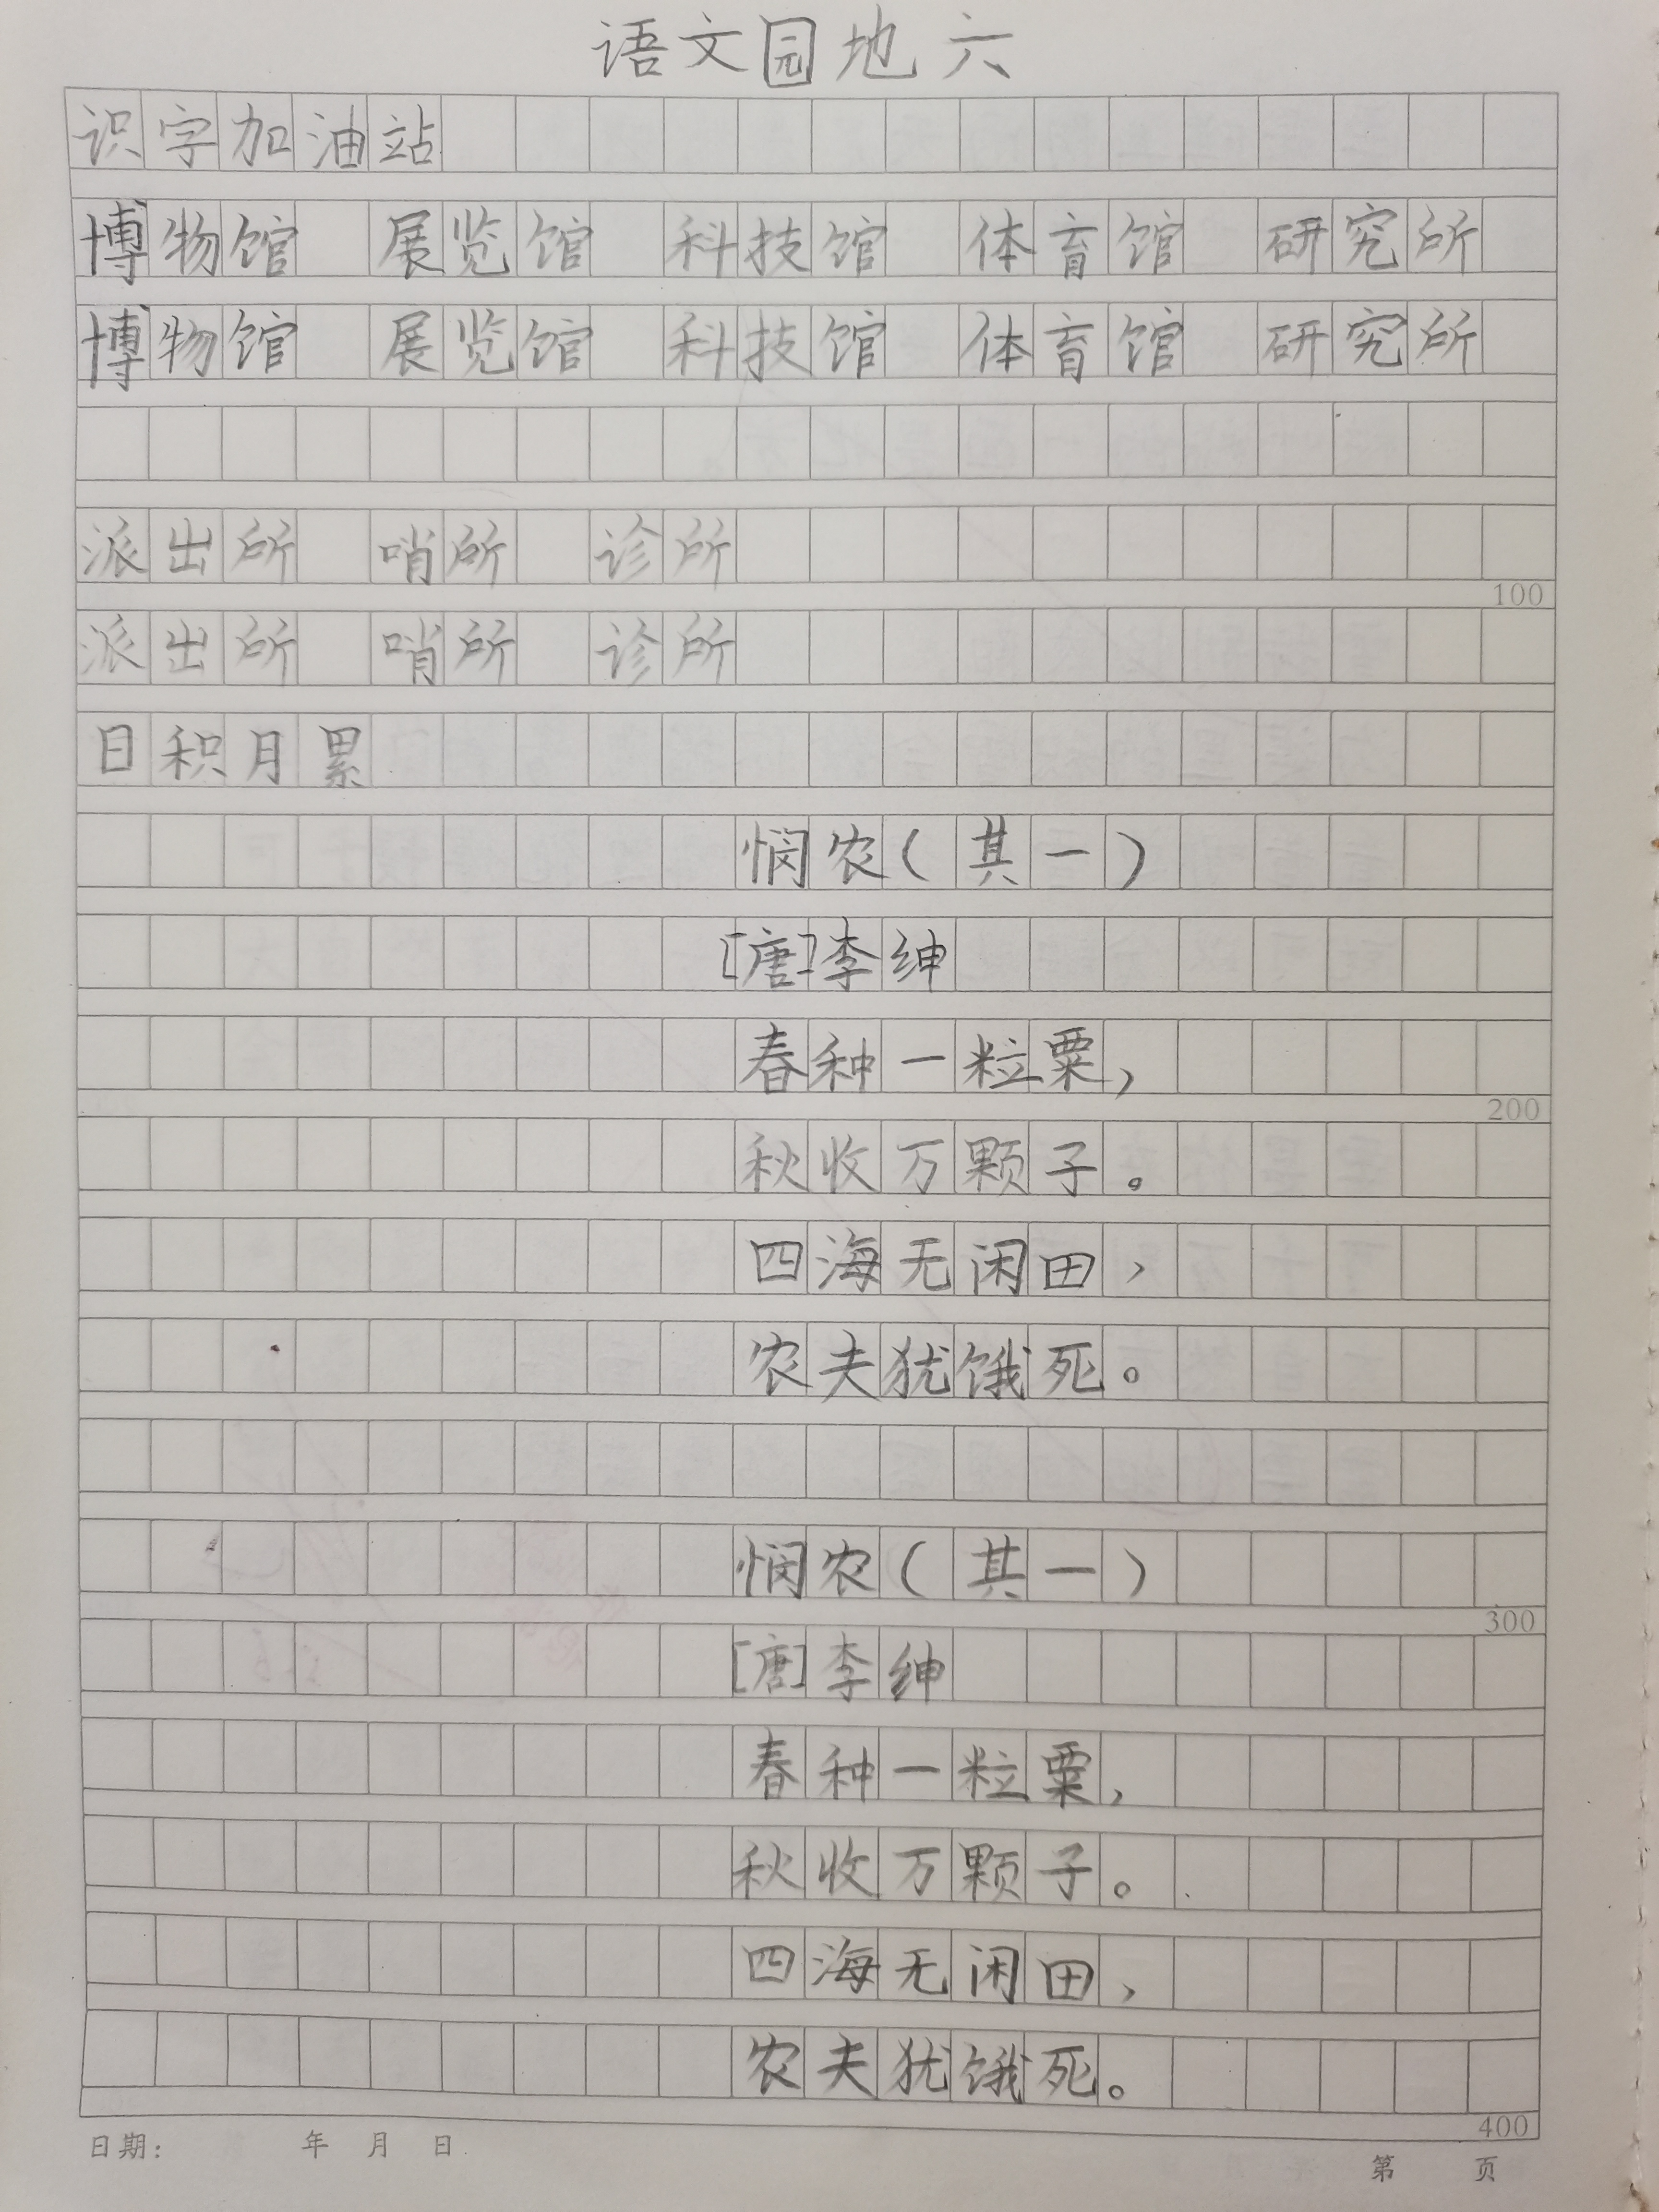 语文园地六
识字加油站
博物馆 展览馆 科技馆 体育馆 研究所
博物馆 展览馆 科技馆 体育馆 研究所
派出所 哨所 诊所
100
派出所 哨所 诊所
日积月累
悯农(其一)
[唐]李绅
春种一粒粟,
200
秋收万颗子。
四海无闲田,
农夫犹饿死。
悯农(其一)
300
[唐]李绅
春种一粒粟,
秋收万颗子。
四海无闲田,
农夫犹饿死。
400
日期: 年 月 日
第 页